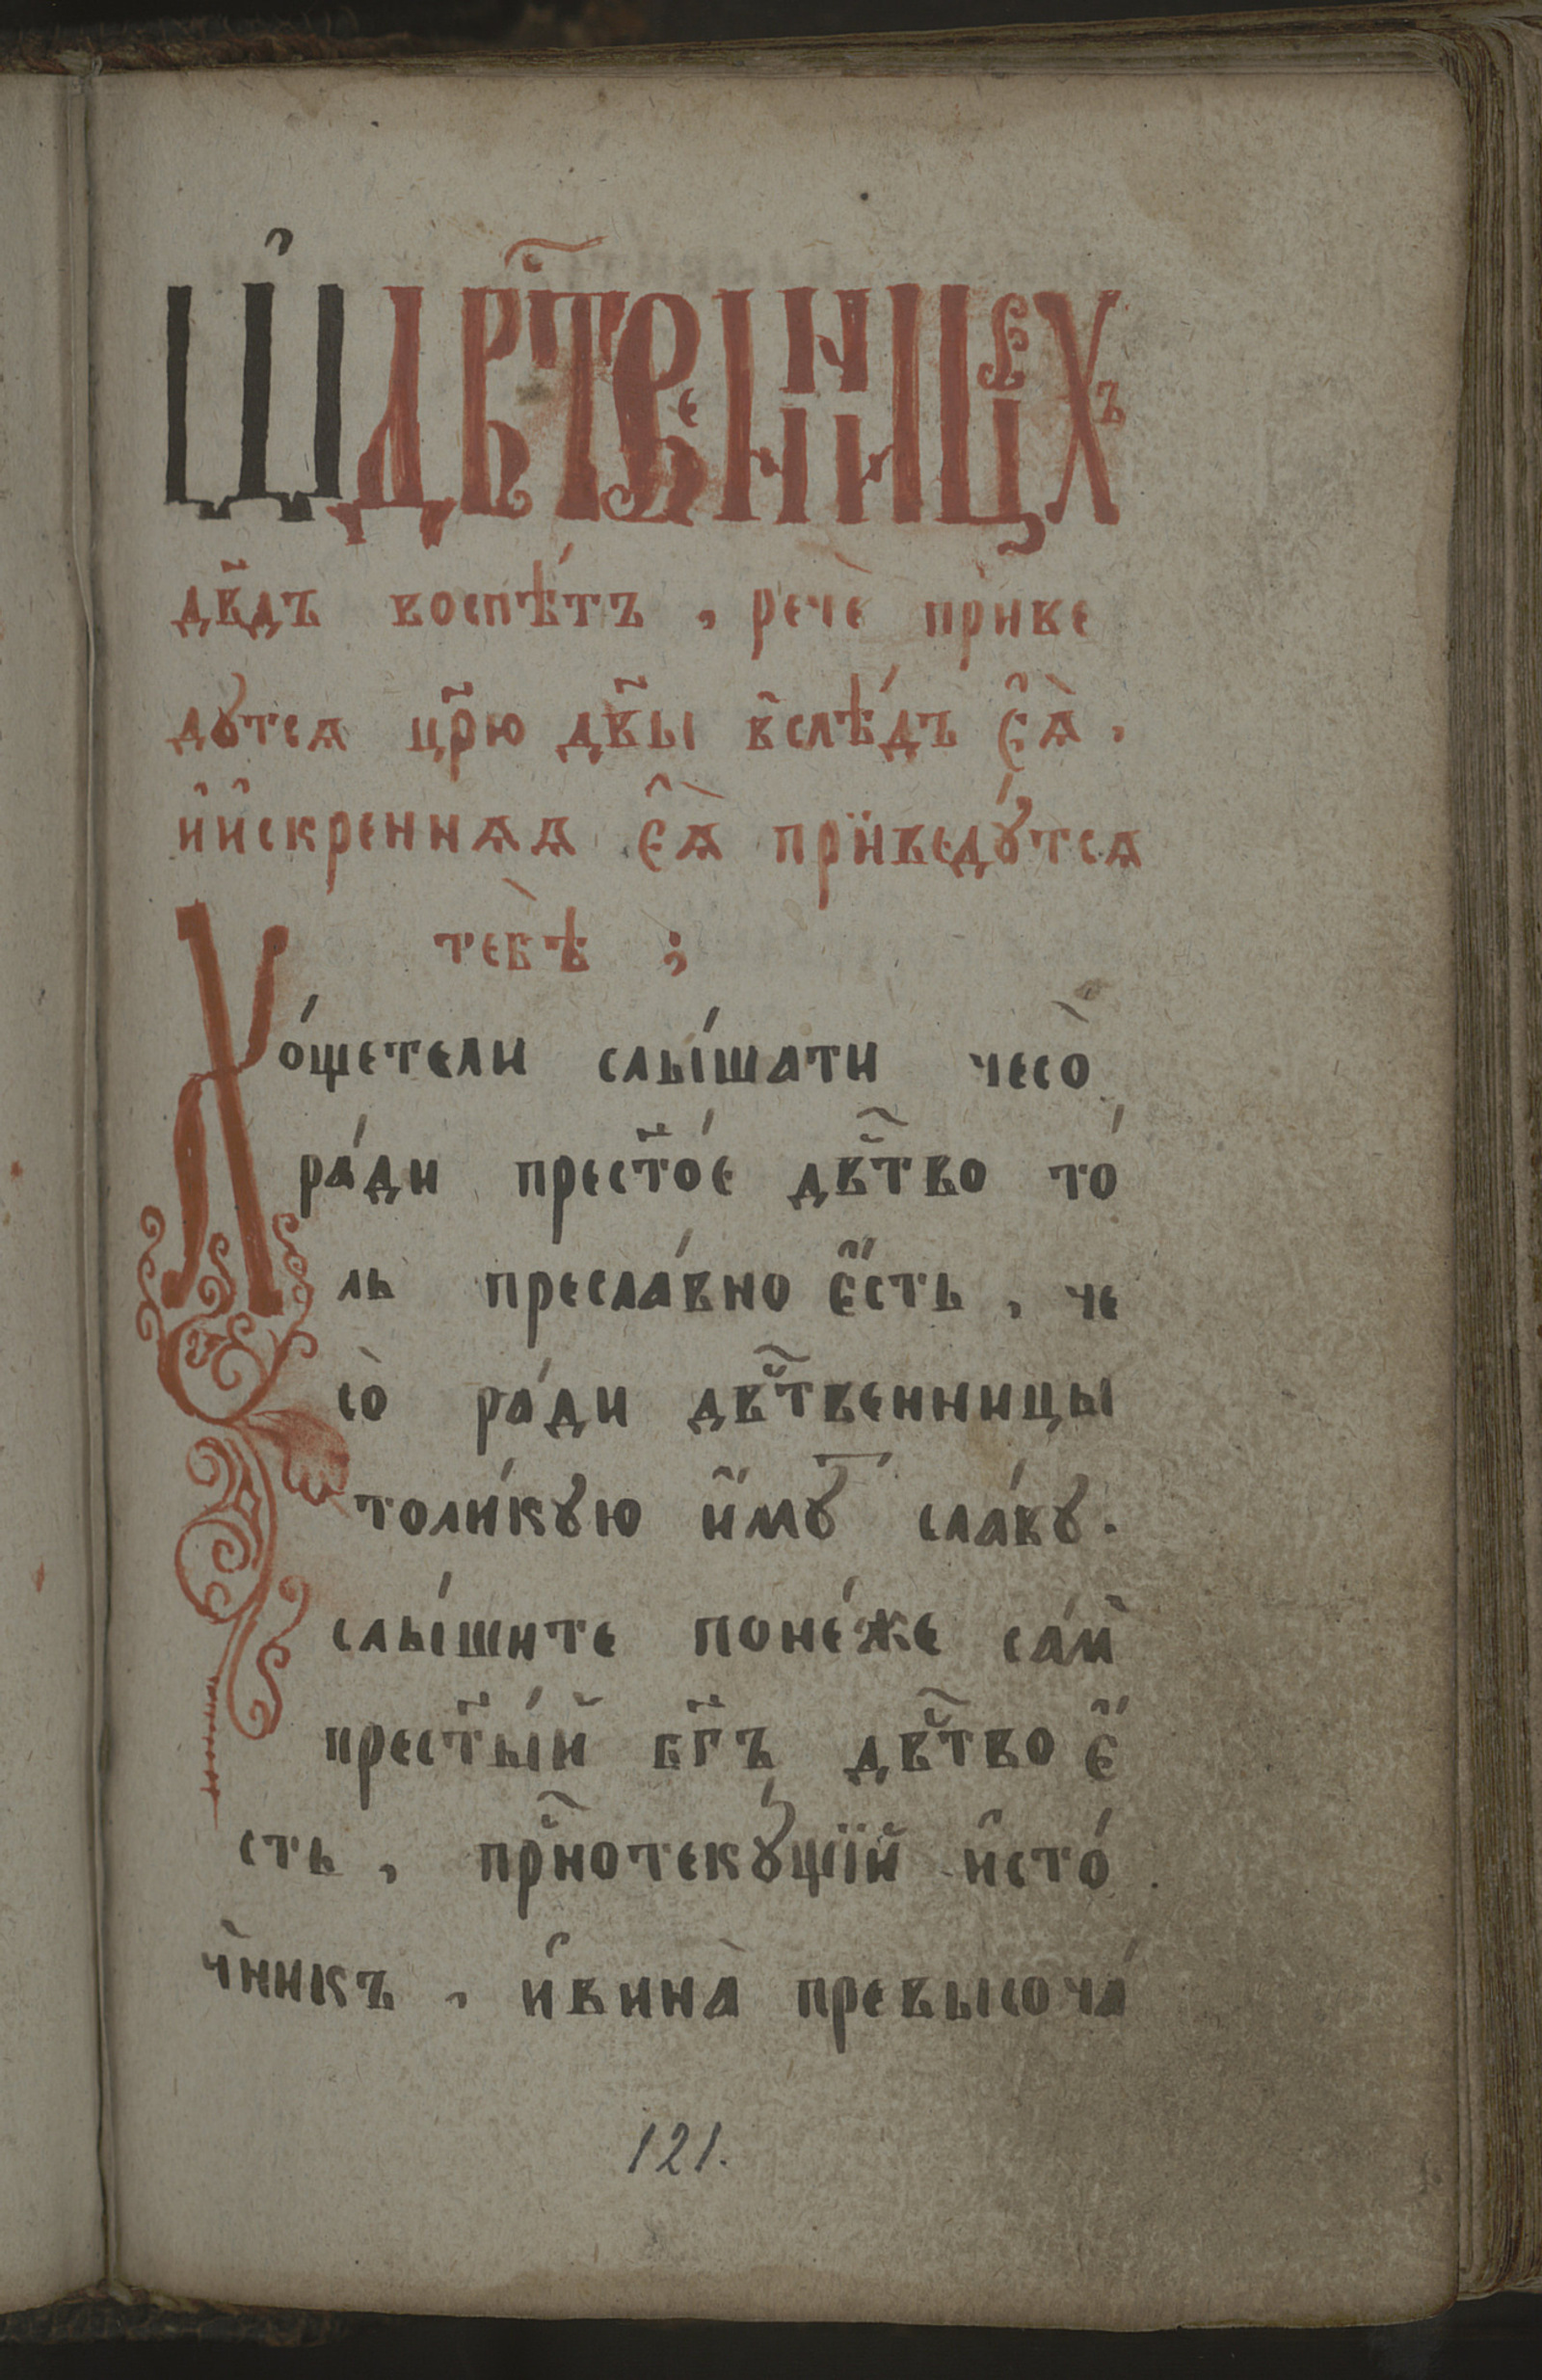 Ѡ҆ дв҃ственницѣхъ
дв҃дъ воспѣ́тъ , речѐ приве
дꙋтсѧ цр҃ю дв҃ы вслѣ́дъ є҆ѧ̀ .
и҆и҆скреннѧѧ є҆ѧ̀ приведꙋ́тсѧ
тебѣ̀ ;
Хо́щетели слы́шати чесо̀
ра́ди прест҃о́е дв҃тво то́
ль пресла́вно є҆́сть , че
со̀ ра́ди дв҃твенницы
толи́кꙋю и҆́мꙋт сла́вꙋ .
слы́шите поне́же са́м
прест҃ы́й бг҃ъ дв҃тво є҆́
сть , пр҃нотекꙋ́щїй и҆сто́
чникъ , и҆вина̀ превысоча́
121.